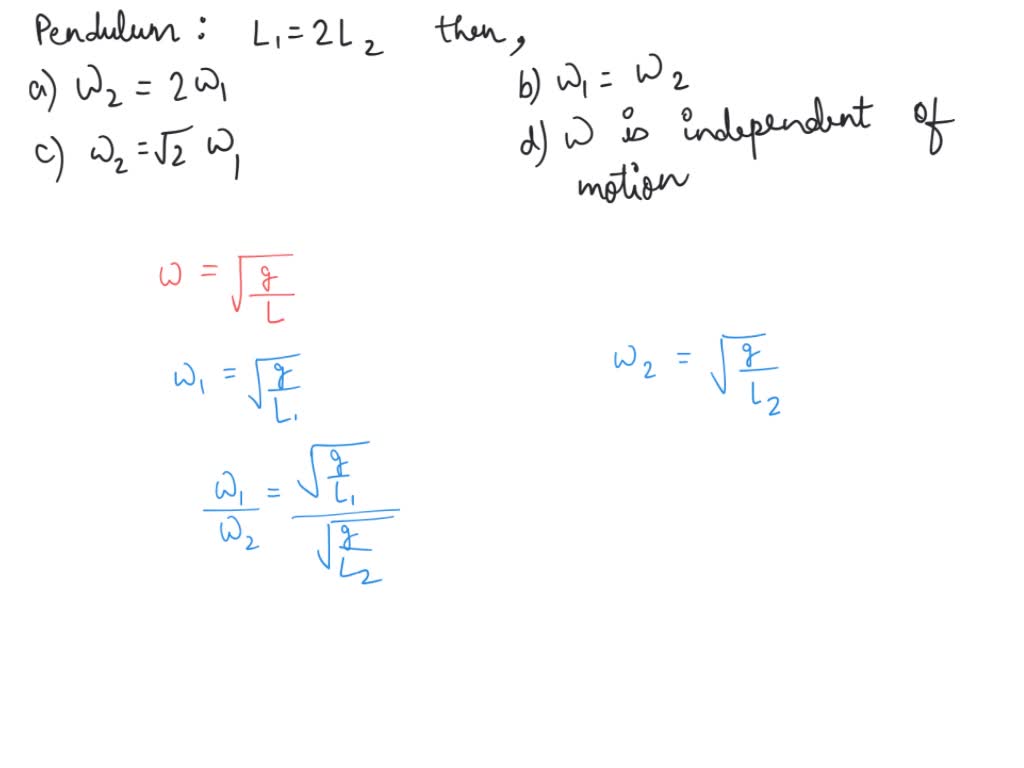 Pendulum : L₁ = 2L₂ then,
a) ω₂ = 2ω₁ b) ω₁ = ω₂
c) ω₂ = √2 ω₁ d) ω is independent of
motion
ω = √(g/L)
ω₁ = √(g/L₁) ω₂ = √(g/L₂)
ω₁/ω₂ = √(g/L₁) / √(g/L₂)